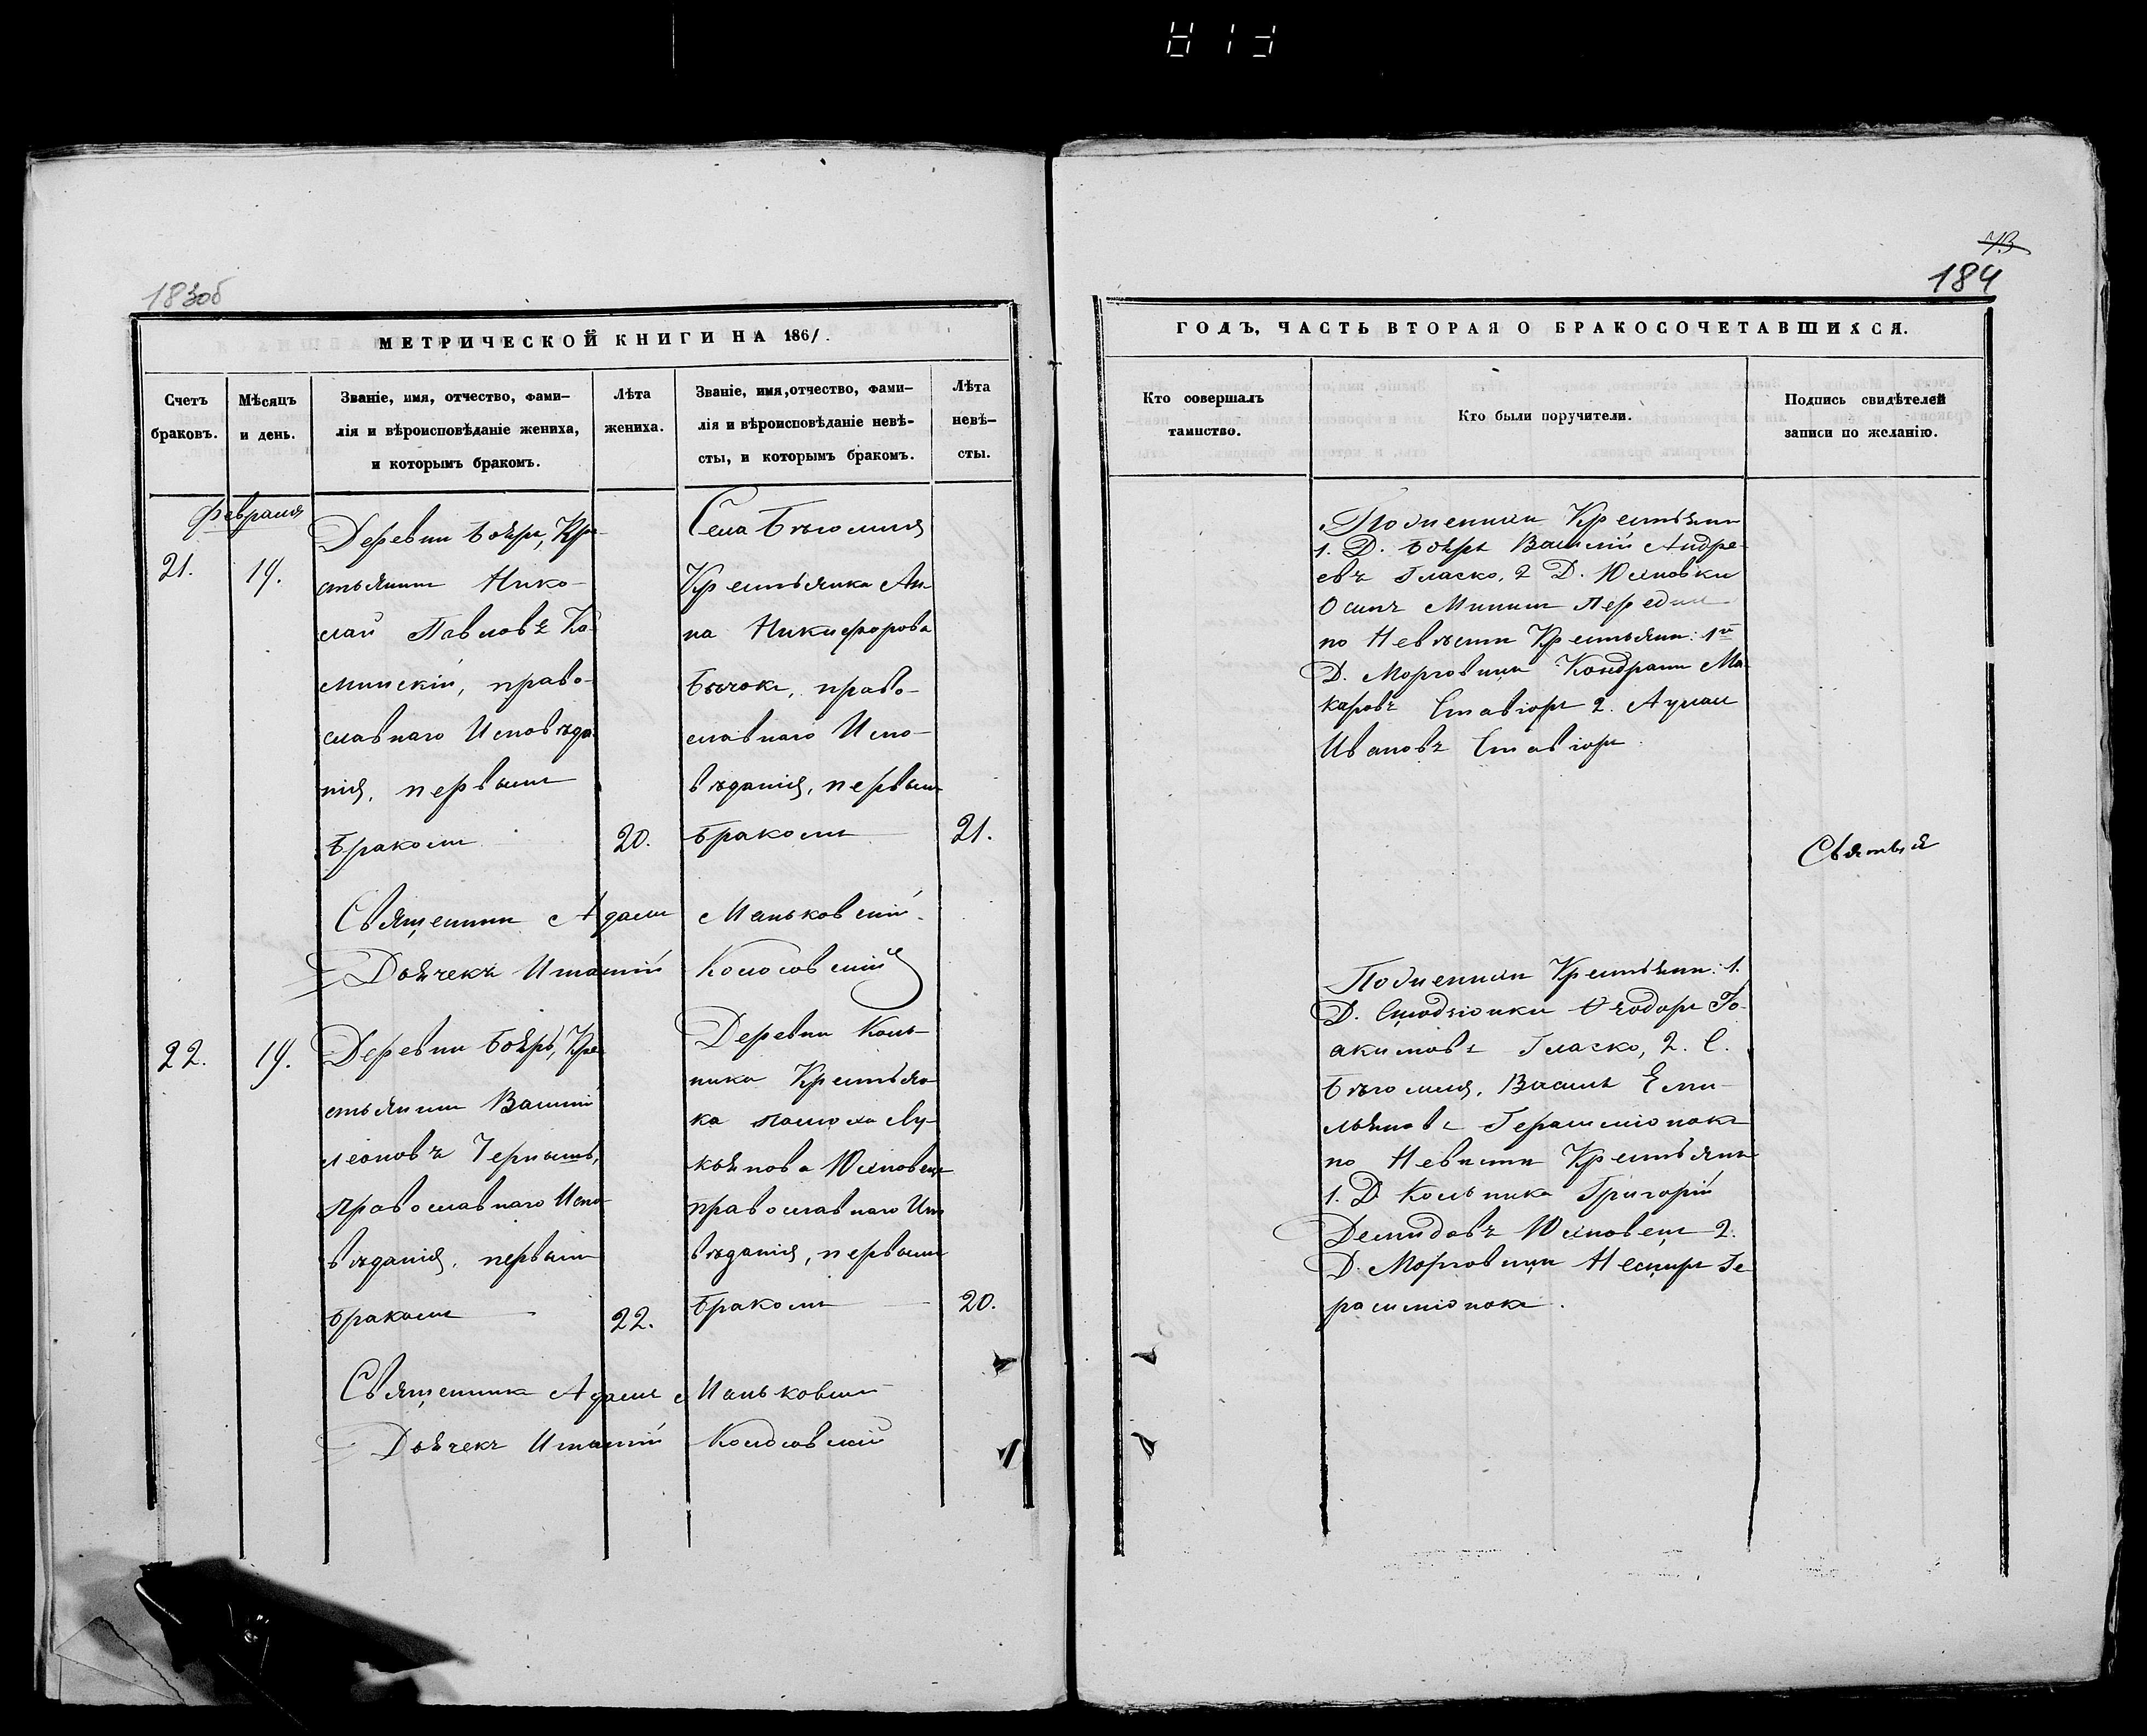 183об
МЕТРИЧЕСКОЙ КНИГИ НА 1861.
Счетъ браковъ.
Мѣсяцъ и день.
Званіе, имя, отчество, фами-
лія и вѣроисповѣданіе жениха,
и которымъ бракомъ.
Лѣта жениха.
Званіе, имя, отчество, фами-
лія и вѣроисповѣданіе невѣ-
сты, и которымъ бракомъ.
Лѣта невѣ-
сты.
Февраля
21. 19.
Деревни Бояръ, Кре-
стьянинъ Нико-
лай Павловъ Ка-
минскій, право-
славнаго Исповѣда-
нія, первымъ
бракомъ 20.
Села Бѣгомля
Крестьянка Ан-
на Никифорова
Бычокъ, право-
славнаго Испо-
вѣданія, первымъ
бракомъ 21.
Священникъ Адамъ Маньковскій.
Дьячекъ Игнатій Колосовскій
22. 19.
Деревни Бояръ, Кре-
стьянинъ Василій
Леоновъ Чернышъ,
Православнаго Испо-
вѣданія, первымъ
бракомъ 22.
Деревни Коль-
ника Крестьян-
ка Лу-
кьянова Юхновецъ
православнаго Испо-
вѣданія, первымъ
бракомъ 20.
Священникъ Адамъ Маньковскій
Дьячекъ Игнатій Колосовскій
73
184
ГОДЪ, ЧАСТЬ ВТОРАЯ О БРАКОСОЧЕТАВШИХСЯ.
Кто совершалъ
таинство.
Кто были поручители.
Подпись свидѣтелей
записи по желанію.
По Крестьяни
1. Д. Бояръ Василій Андре-
евъ Гласко, 2 Д. Юхновки
Осипъ Мининъ
по Невѣсти Крестьяни: 1й
Д. Морговици Кондратъ Ма-
каровъ Ставіоръ 2. Лукьянъ
Ивановъ Ставіоръ.
Святыя
По Крестьяни: 1.
Д. Ѳеодоръ Іо-
акимовъ Гласко, 2. С.
Бѣгомля, Василь Еми-
льяновъ Герасиміонокъ
по Невѣсти Крестьяни
1. Д Кольника Григорій
Демидовъ Юхновецъ 2.
Д. Морговици Ге-
расиміонокъ.